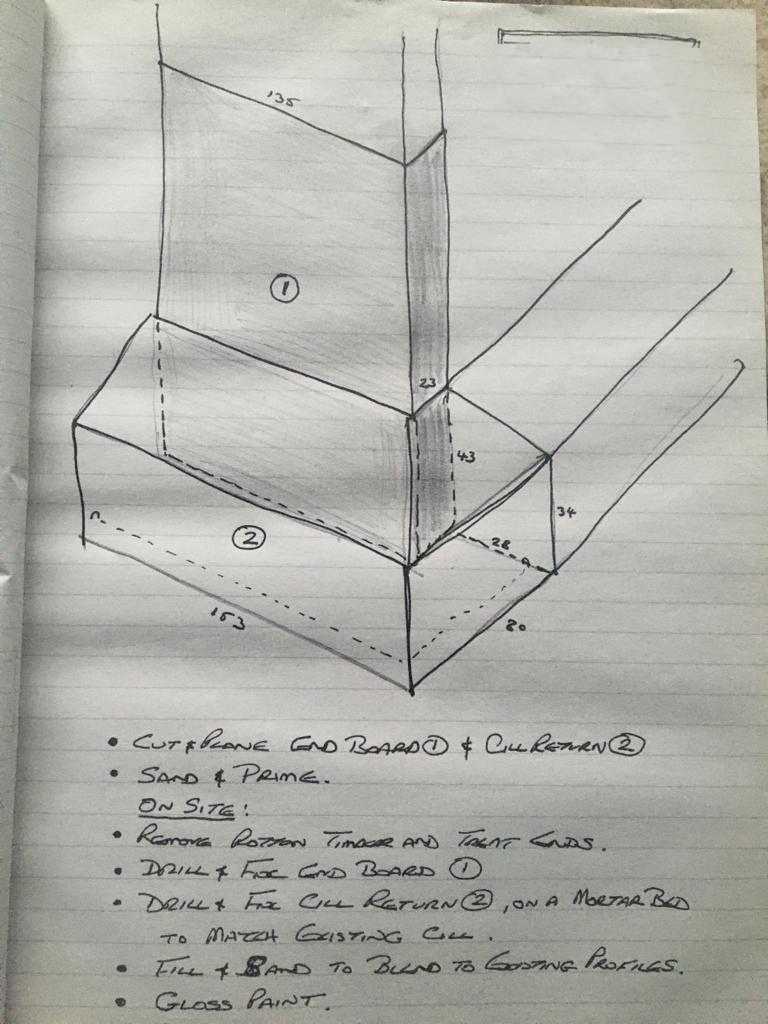 135
①
23
43
34
②
28
153
80
• CUT & PLANE END BOARD ① & CILL RETURN ②
• SAND & PRIME.
ON SITE:
• REMOVE ROTTEN TIMBER AND TREAT ENDS.
• DRILL & FIX END BOARD ①
• DRILL & FIX CILL RETURN ②, ON A MORTAR BED
TO MATCH EXISTING CILL.
• FILL & SAND TO BLEND TO EXISTING PROFILES.
• GLOSS PAINT.